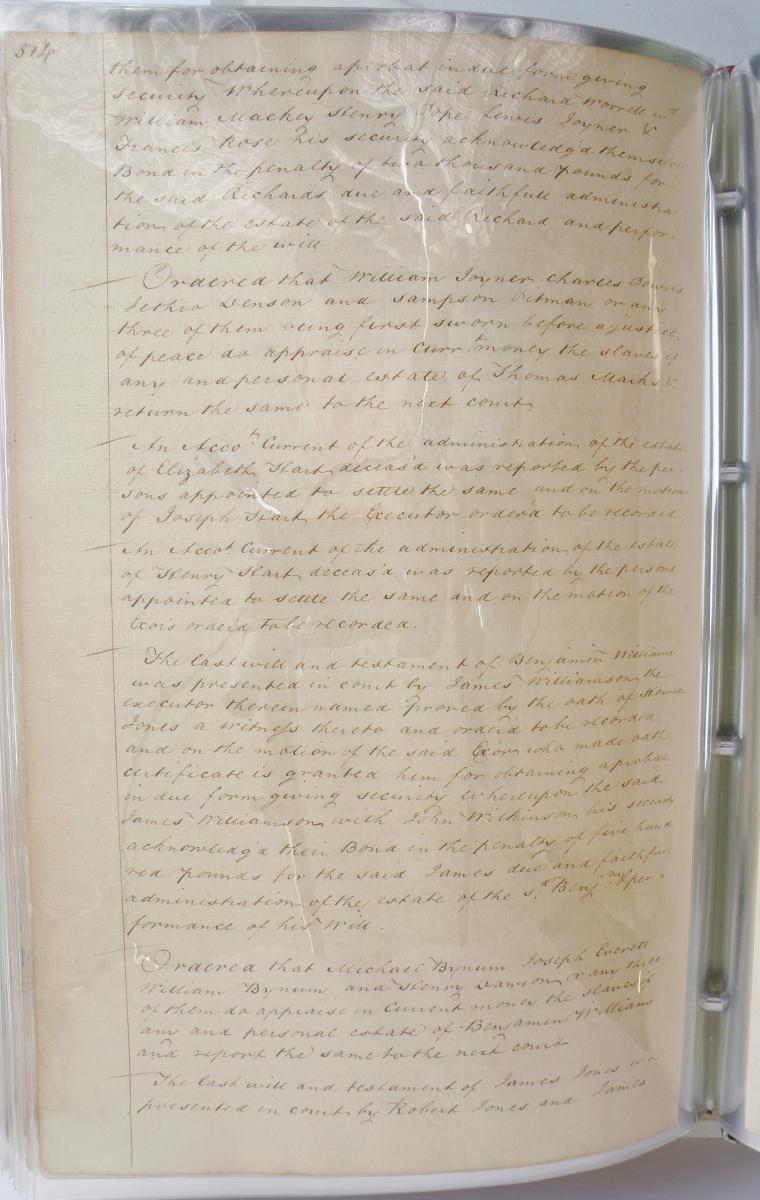 514
them for obtaining a probat in due form giving
security Whereupon the said Richard Worrell wth
William Mackey Henry Pope Lewis Joyner &
Francis Rose his security acknowledg'd themselves
Bond in the penalty of two thousand pounds for
the said Richards due and faithfull administra
tion of the estate of the said Richard and perfor-
mance of the will
Ordered that William Joyner charles Bowers
Jethro Denson and Sampson Pitman or any
three of them being first sworn before a justice
of peace do appraise in Curr.t money the slaves if
any and personal estate of Thomas Marks &
return the same to the next court
An Acco.t Current of the administration of the estate
of Elizabeth Hart deceas'd was reported by the per-
sons appointed to settle the same and on the motion
of Joseph Hart the Executor order'd to be recorded
An Accot. Current of the administration of the estate
of Henry Hart deceas'd was reported by the persons
appointed to settle the same and on the motion of the
Exors order'd to be recorded.
The last will and testament of Benjamin Williams
was presented in court by James Williamson the
executor therein named proved by the oath of
Jones a witness thereto and order'd to be recorded
and on the motion of the said Exor who made oath
certificate is granted him for obtaining a probat
in due form giving security whereupon the said
James Williamson with John Wilkinson his security
acknowledg'd their Bond in the penalty of five hund
red pounds for the said James due and faithfull
administration of the estate of the s.d Benj.mn & per=
formance of his Will.
Ordered that Michael Bynum Joseph Everett
William Bynum and Henry Dawson or any three
of them do appraise in Current money the slaves if
any and personal estate of Benjamin Williams
and report the same to the next court
The last will and testament of James Jones was
presented in court by Robert Jones and James